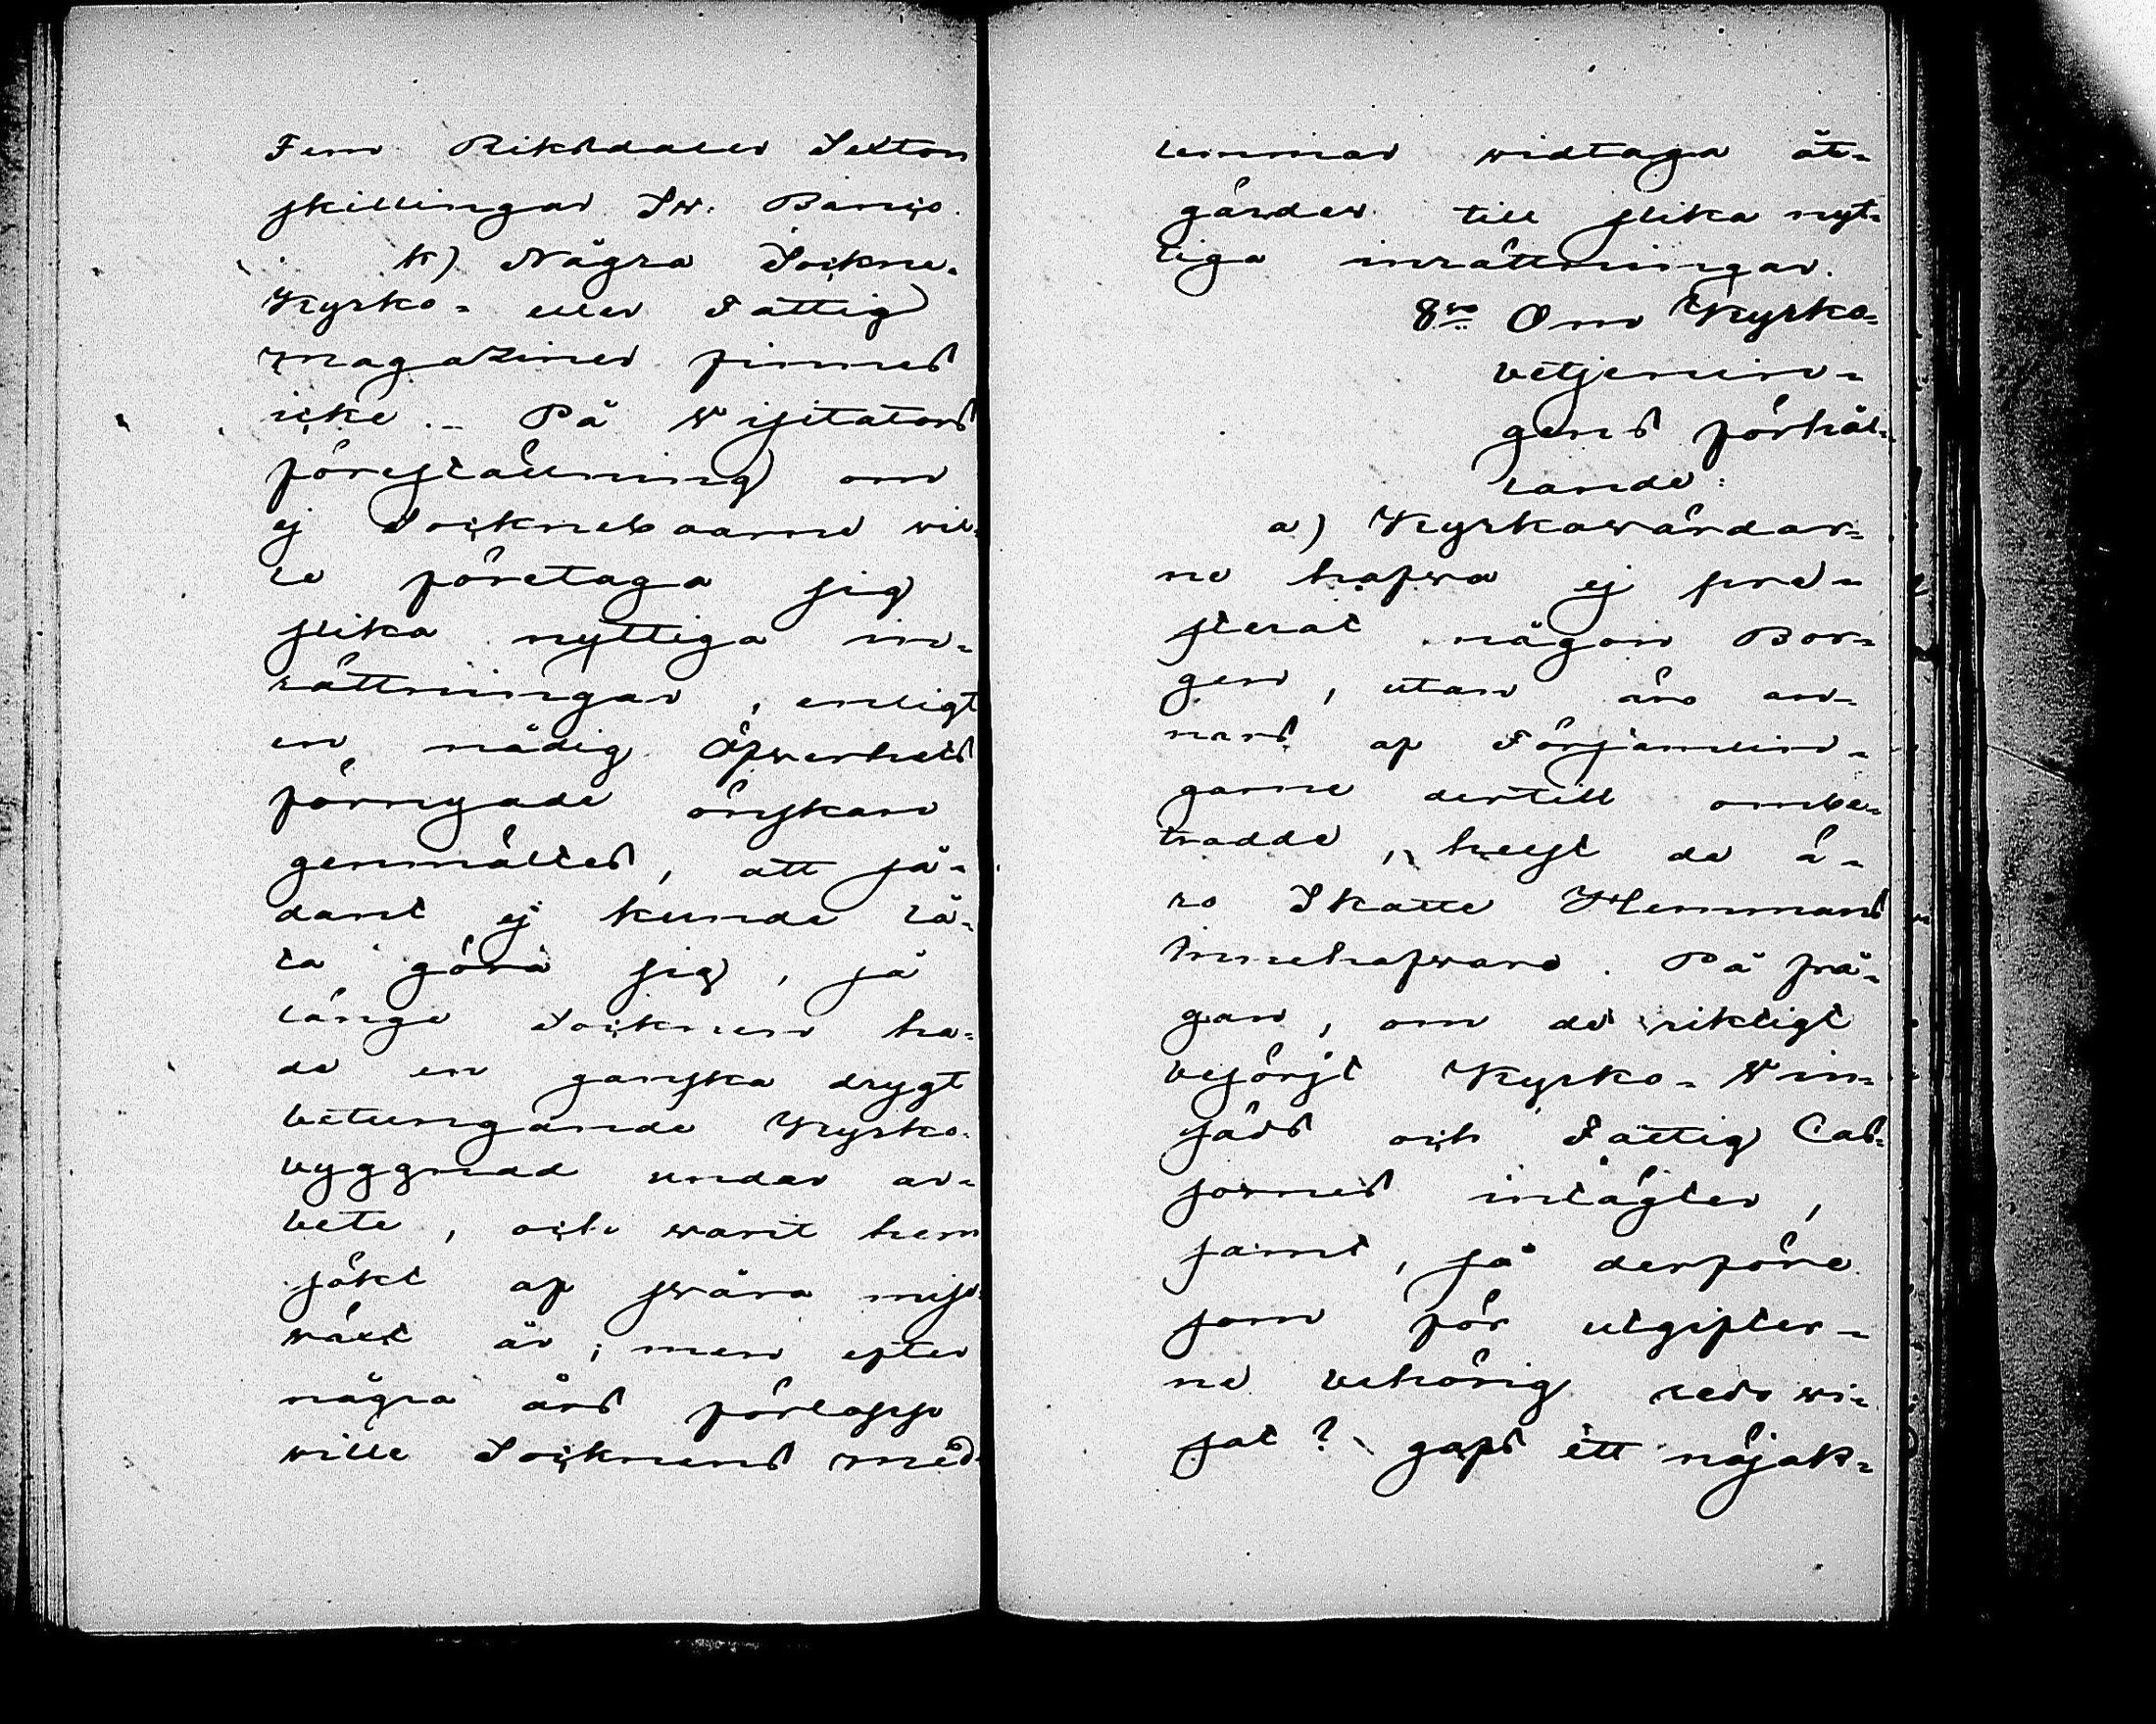 Fem Riksdaler Sexton
skillingar Sw. Banco.
k) Några Sockne-
Kyrko- eller Fattig
magaziner finnes
icke. – På Visitators
föreställning om
ej Sockneboarne wil-
le företaga sig
slika nyttiga in-
rättningar, enligt
en nådig Öfwerhets
förnyade önskan
genmältes, att så-
dant ej kunde lå-
ta göra sig, så
länge Socknen ha-
de en ganska drygt
betungande Kyrko-
byggnad under ar-
bete, och warit hem
sökt af swåra miss-
wäxt år; men efter
några års förlopp
wille Socknens med-
lemmar widtaga åt-
gärder till slika nyt-
tiga inrättningar.
8vo Om Kyrko-
betjenin-
gens förhål-
lande:
a) Kyrkowärdar-
ne hafwa ej præ-
sterat någon Bor-
gen, utan äro an-
nars af Församlin-
garne dertill ombe-
trodde, helst de ä-
ro Skatte Hemmans
Innehafware. På frå-
gan, om de riktigt
besörjt Kyrko- Win-
säds och Fattig Cas-
sornes intägter,
samt, så derföre
som för utgifter-
ne behörig redo wi-
sat? gafs ett nöjak-